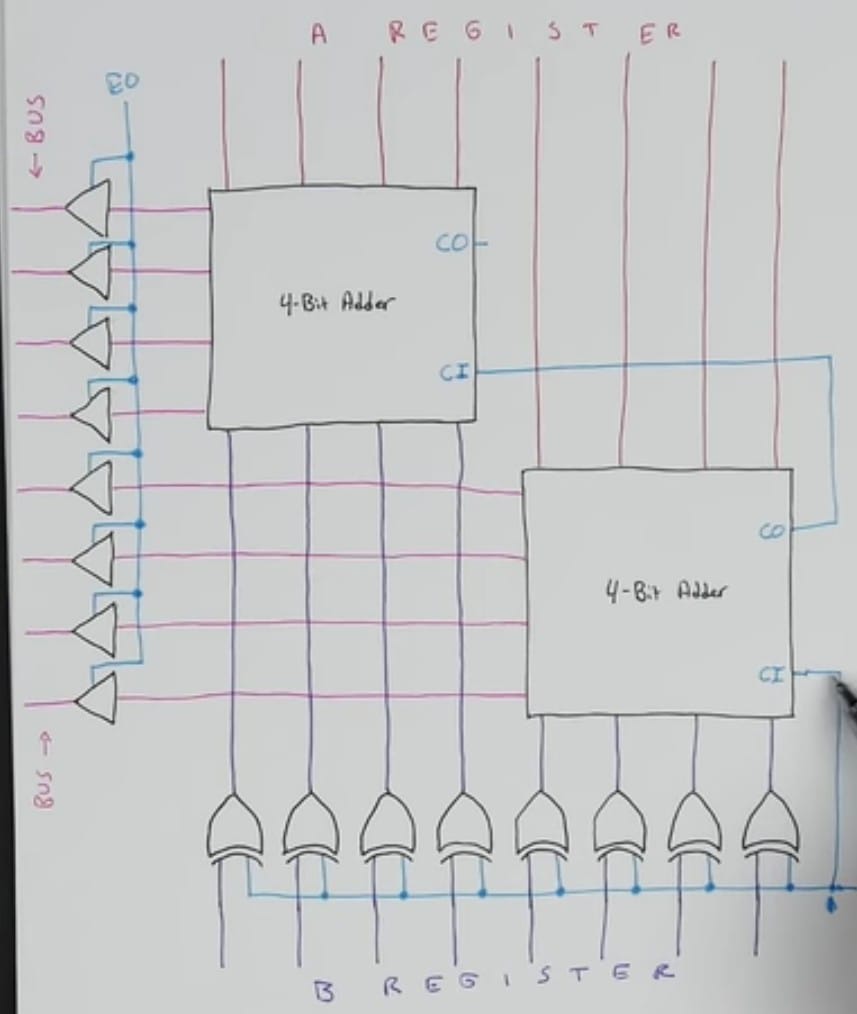 A REGISTER
EO
← BUS
CO
4-Bit Adder
CI
CO
4-Bit Adder
CI
BUS →
B REGISTER